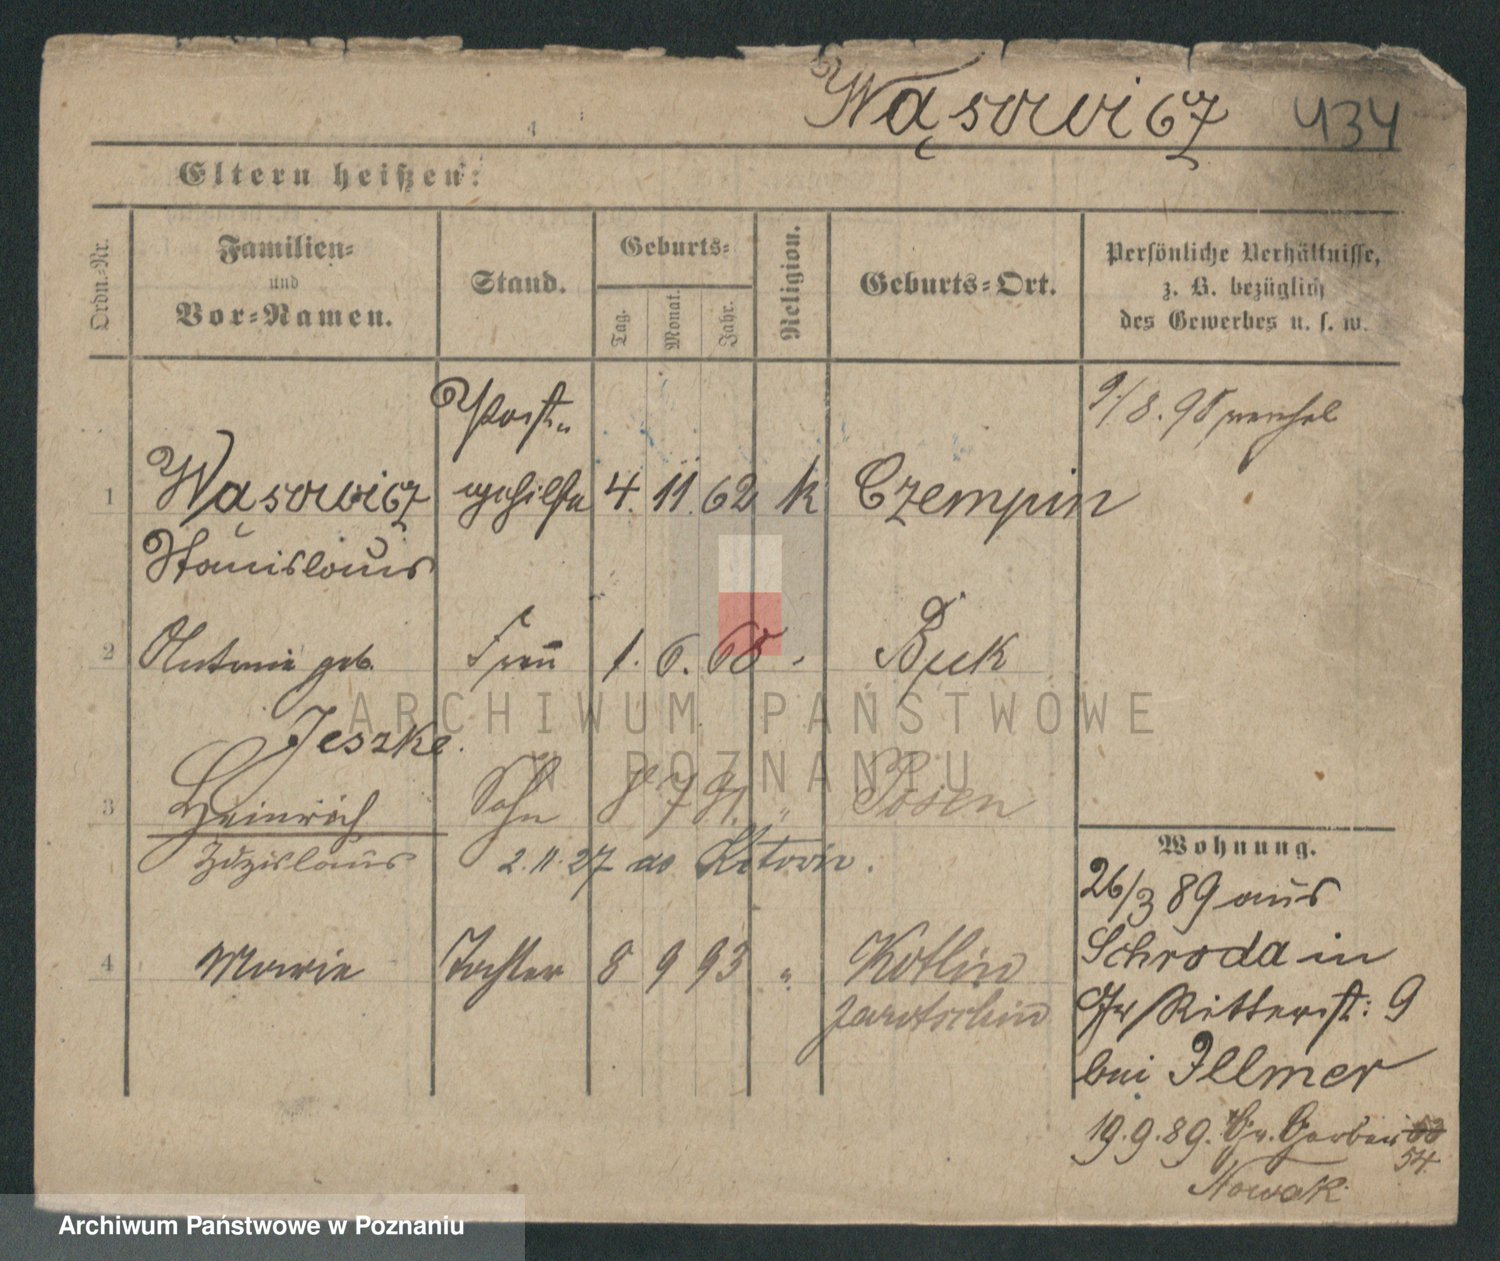 Wąsowicz 434
Eltern heißen:
Ordn.=Nr.
Familien=
und
Vor=Namen.
Stand.
Geburts=
Tag.
Monat.
Jahr.
Religion.
Geburts=Ort.
Persönliche Verhältnisse,
z. B. bezüglich
des Gewerbes u. s. w.
Post-
9/8. 95
1 Wąsowicz gehilfe 4. 11. 62 k Czempin
Stanislaus
2 Antonie geb. Frau 1. 6. 68 Buk
Jeszke.
3 Heinrich Sohn 8 7 91. " Posen
Zdzislaus 2. 11. 27
4 Marie Tochter 8 9 93 " Kotlin
Jarotschin
Wohnung.
26/3 89 aus
Schroda in
Gr Ritterst: 9
bei Illmer
19.9.89. Gr. Gerber 53
54.
Nowak
ARCHIWUM PAŃSTWOWE
W POZNANIU
Archiwum Państwowe w Poznaniu